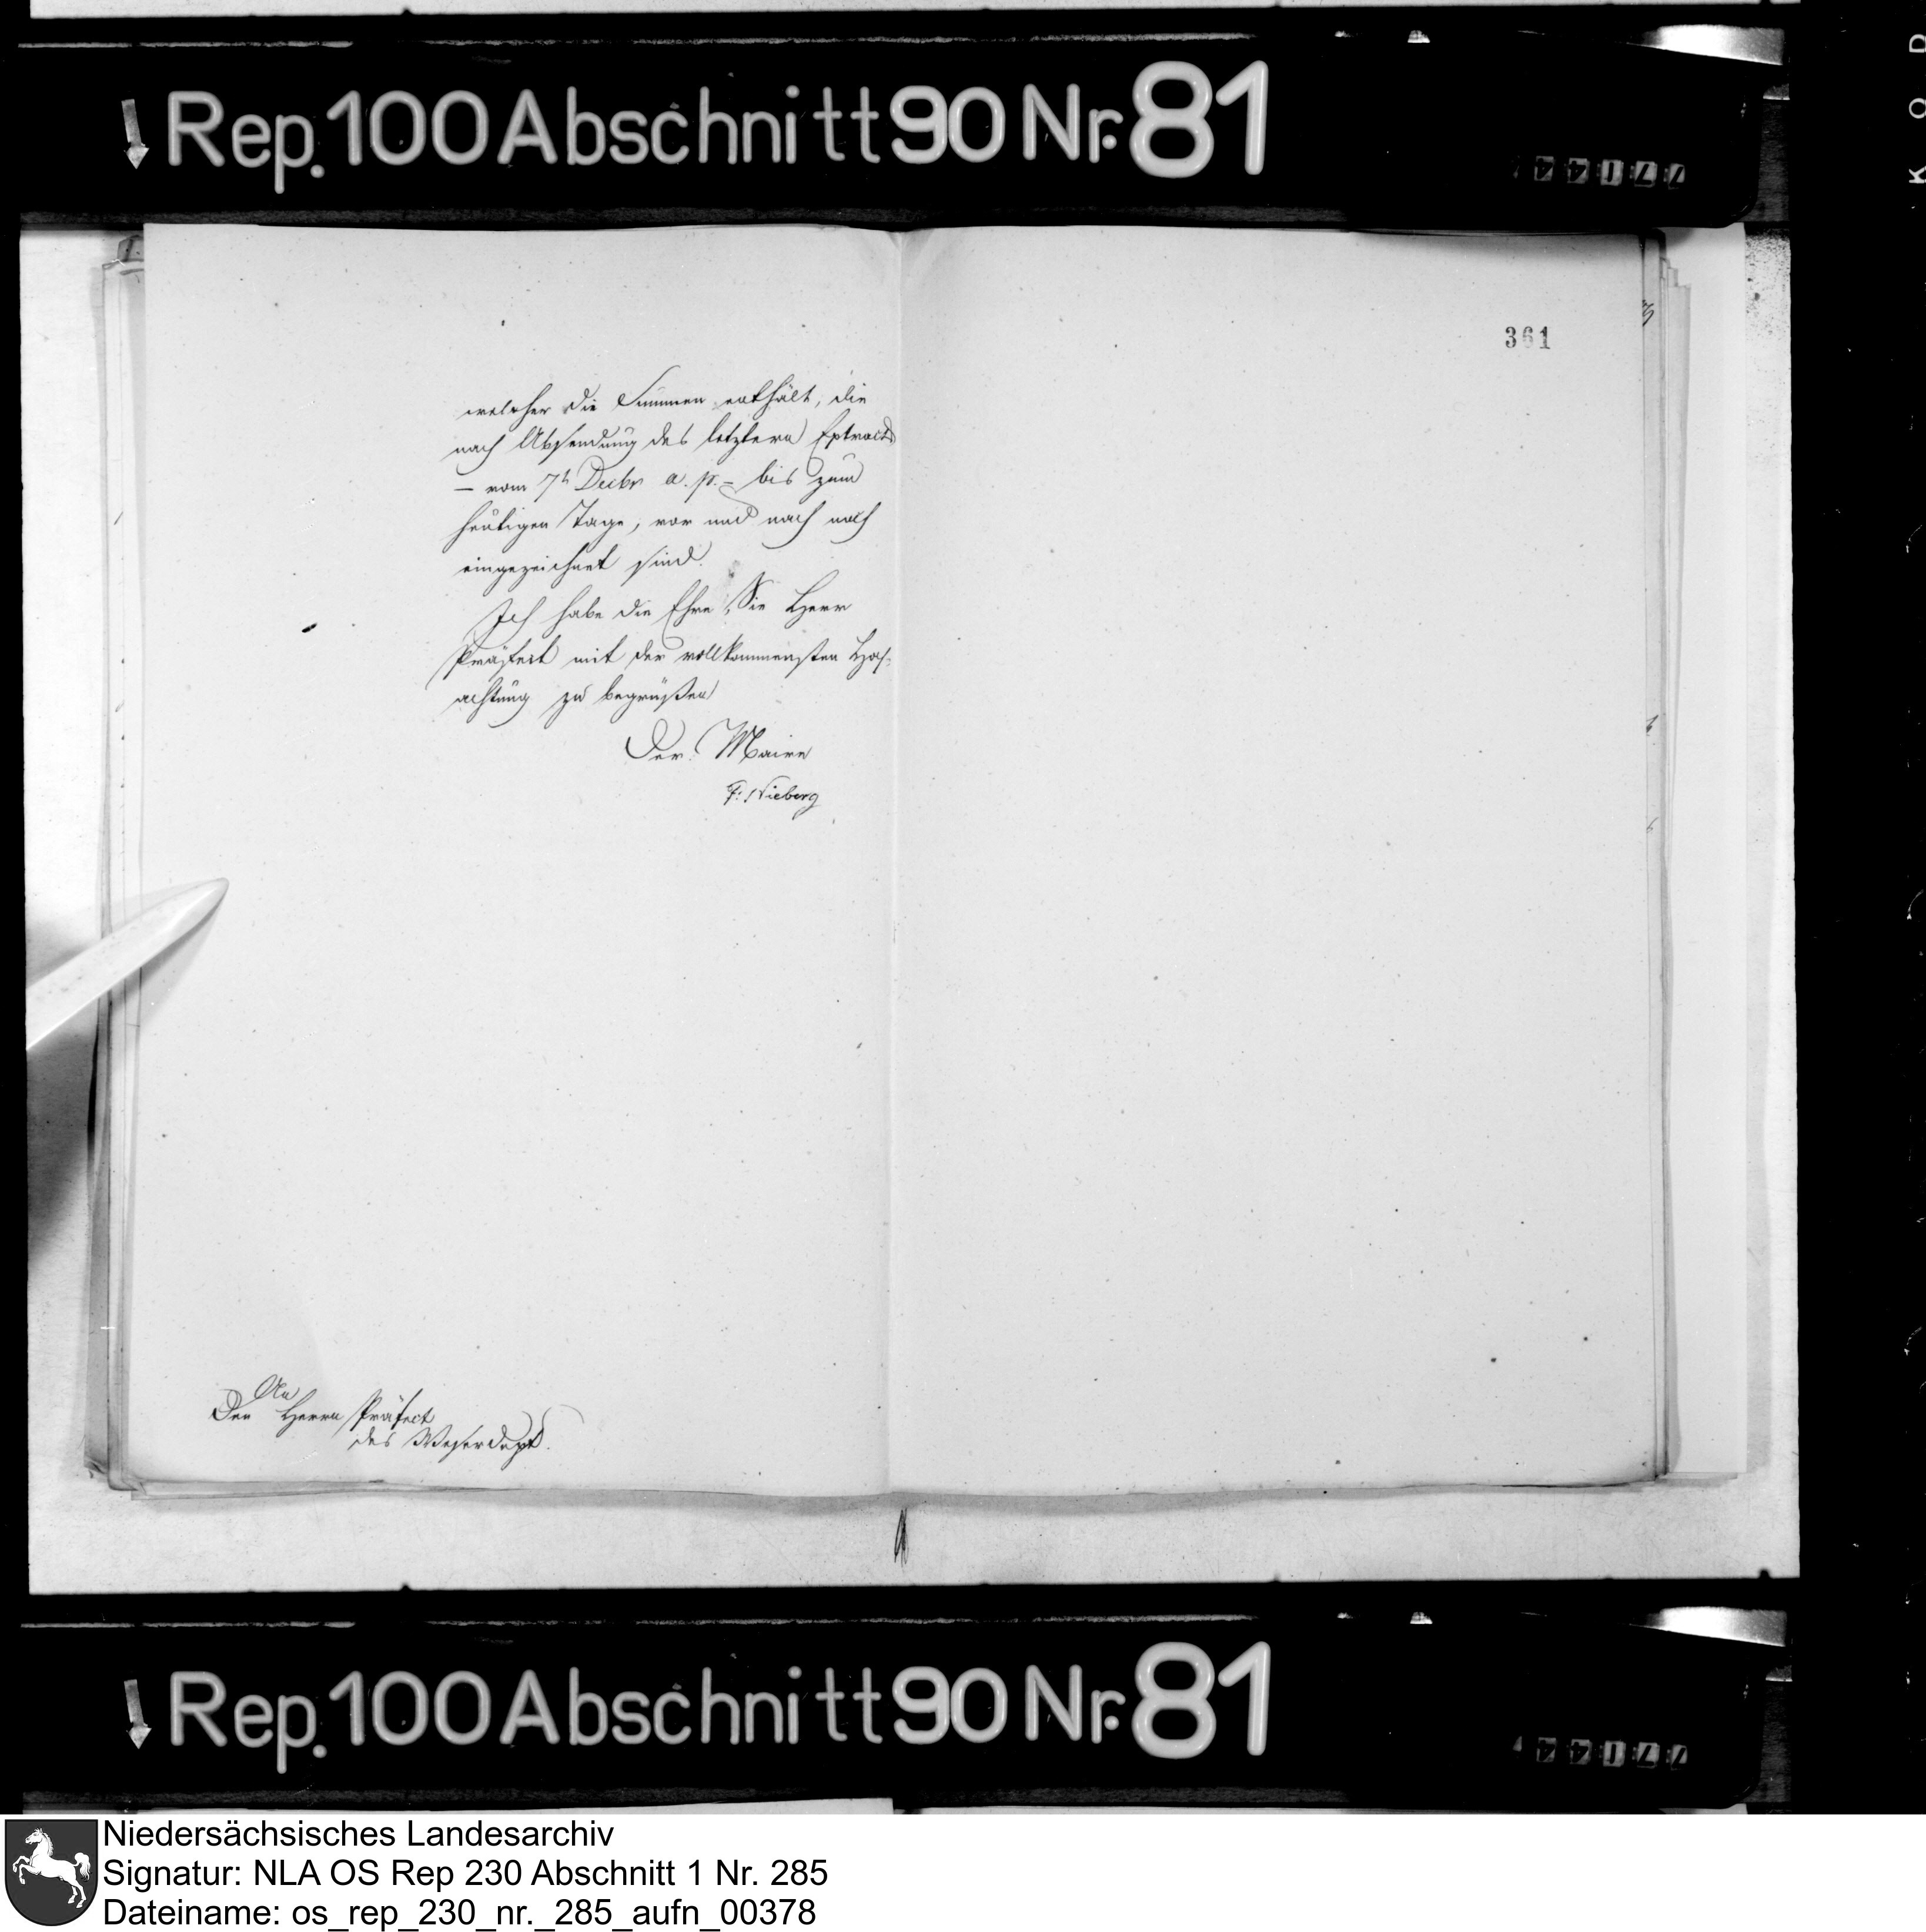 Rep. 100 Abschnitt 90 Nr. 81
361
welcher die Summen enthält, die
nach Absendung des letztern Extracts
– vom 7t Decbr a. p. – bis zum
heutigen Tage, vor und nach noch
eingezeichnet sind.
Ich habe die Ehre, Sie Herr
Präfect mit der vollkommensten Hoch-
achtung zu begrüßen
Der Maire
F: Nieberg
An
Den Herrn Präfect
des Weserdept.
Rep. 100 Abschnitt 90 Nr. 81
Niedersächsisches Landesarchiv
Signatur: NLA OS Rep 230 Abschnitt 1 Nr. 285
Dateiname: os_rep_230_nr._285_aufn_00378